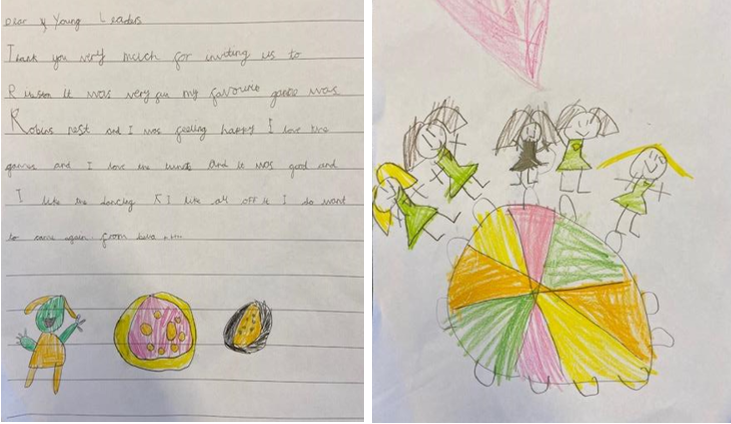 Dear Young Leaders
Thank you very much for inviting us to
it was very fun my favourite game was
Robins nest and I was feeling happy I love the
games and I love the lunch and it was good and
I like the dancing I like all off it I do want
to came again from